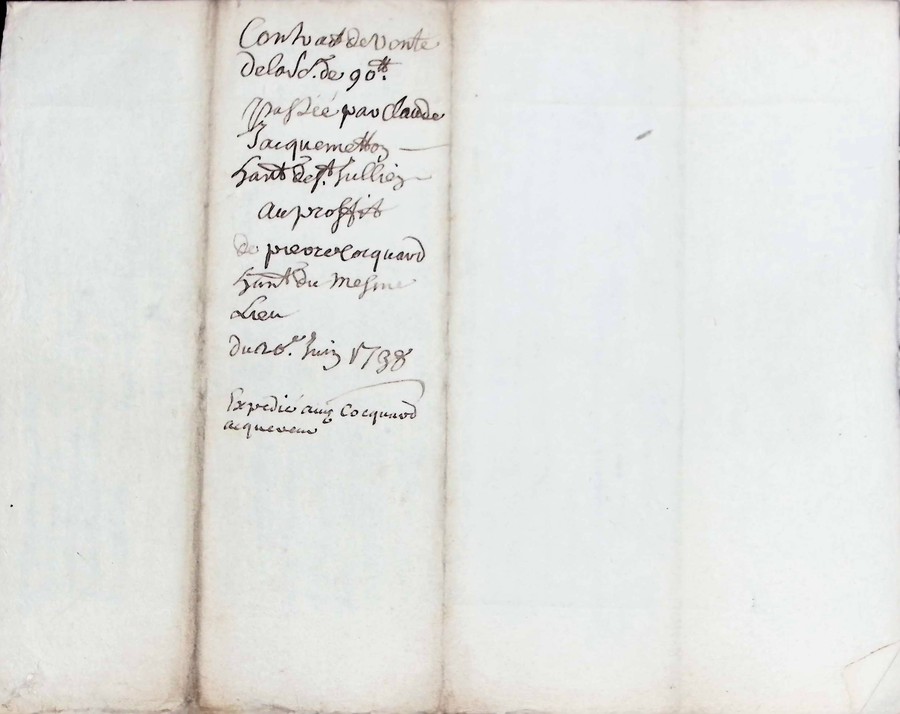 Contract de vente
de la S.e de 90tt.
passée par Claude
Jacquemetton
hant de St. Jullien
au proffit
de pierre Cocquard
hant du mesme
Lieu
du 26.e Juin 1738
Expedié aud Cocquard
acquereur